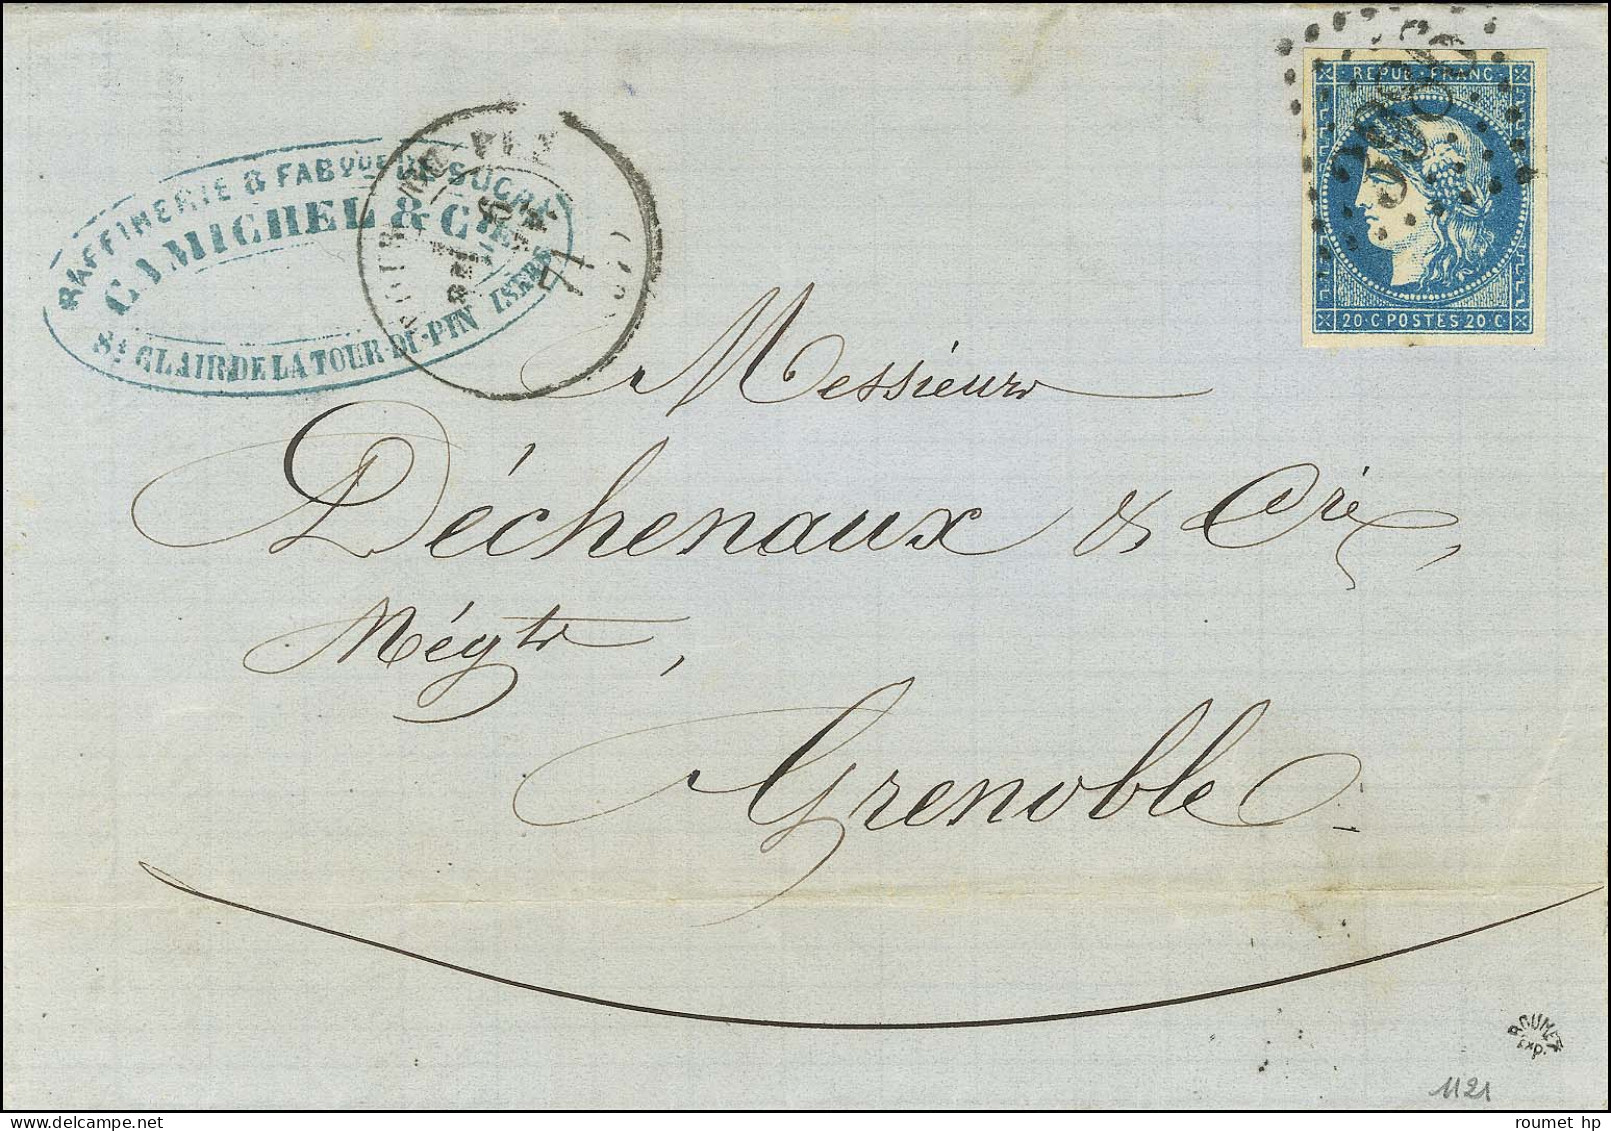 REPUB·FRANC
3986
20·C·POSTES·20·C·
RAFFINERIE & FABque DE SUCRE
CAMICHEL & Cie
St CLAIR DE LA TOUR-DU-PIN ISERE
LA TOUR-DU-PIN
71
Messieurs
Déchenaux & Cie,
Négts,
Grenoble
ROUMET
Exp.
1121
roumet hp